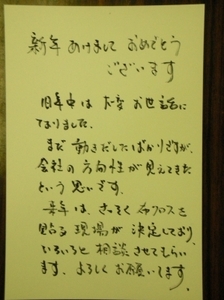 新年 あけまして おめでとう
ございます
旧年中は 大変 お世話に
なりました。
まだ 動きだしたばかりですが、
会社の方向性が見えてきた
という思いです。
来年は、さっそく 布クロスを
貼る 現場が 決定しており
いろいろと 相談させてもらい
ます。よろしくお願いします。